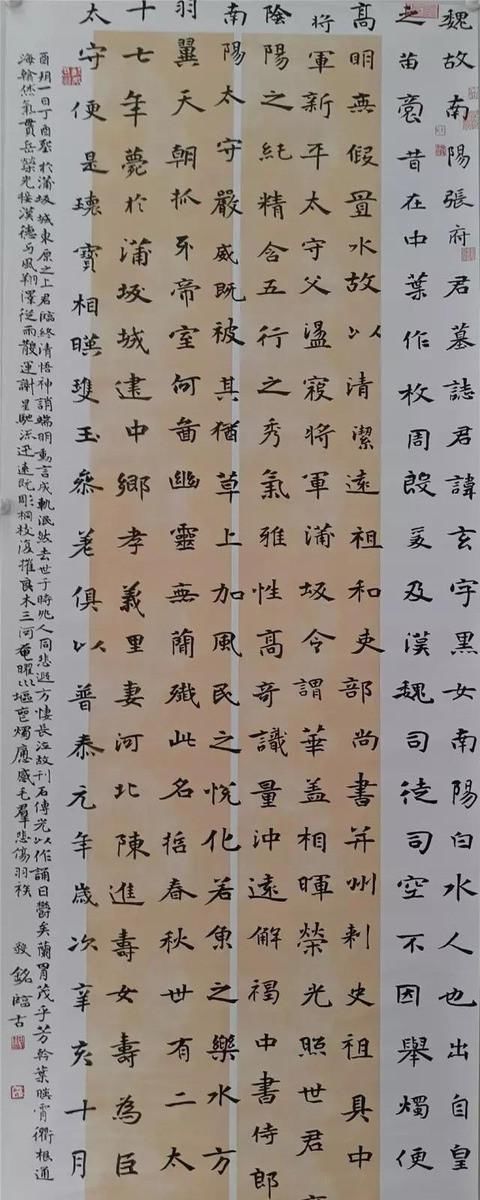 魏故南陽張府君墓誌君諱玄字黑女南陽白水人也出自皇
之苗裔昔在中葉作牧周殷爰及漢魏司徒司空不因舉燭便
高明無假置水故以清潔遠祖和吏部尚書并州刺史祖具中
將軍新平太守父盪寇將軍蒲坂令謂華蓋相暉榮光照世君
陰陽之純精含五行之秀氣雅性高奇識量沖遠解褐中書侍郎
南陽太守嚴威既被其猶草上加風民之悅化若魚之樂水方
羽翼天朝抓牙帝室何啚幽靈無蘭殲此名哲春秋世有二太
十七年薨於蒲坂城建中鄉孝義里妻河北陳進壽女壽為臣
太守便是瓌寶相暎玉參差俱以普泰元年歲次辛亥十月
酉朔一日丁酉葬於蒲坂城東原之上君臨終清悟神誚端明動言成軌泯然去世于時兆人同悲遐方悽長泣故刊石傳光以作誦曰鬱矣蘭冑茂乎芳幹葉暎霄衢根通
海翰然氣貫岳榮光接漢德与風翔澤從雨散運謝星馳流迅速既彫桐枝復摧良木三河奄曜堙燭感毛羣悲傷羽族
敬銘臨古